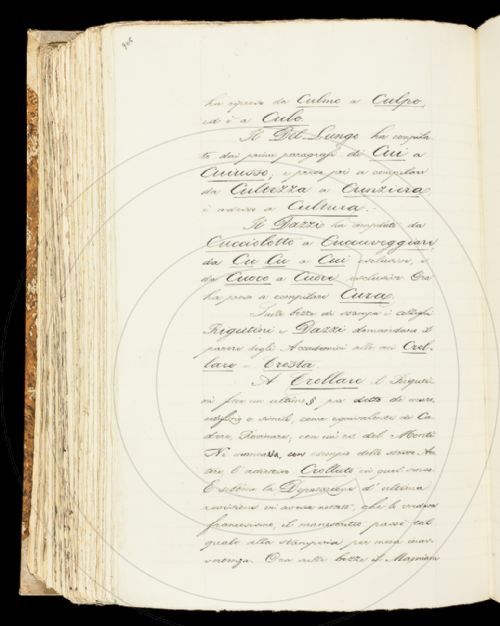 905
ha ripreso da Culmo a Culpo,
ed è a Culo.
Il Del Lungo ha compila-
to dai primi paragrafi di Cui a
Cuiusso; e passa poi a compilare
da Cultezza a Cunziera
è adesso a Cultura.
Il Dazzi ha compilato da
Cucciolotto a Cucuveggiare
da Cu Cu a Cui esclusive, e
da Cuoco a Cuore esclusive. Ora
ha preso a compilare Cura.
Sulle bozze di stampa i colleghi
Rigutini e Dazzi domandano il
parere degli Accademici alle voci Crol-
lare e Cresta.
A Crollare il Riguti-
ni fece un ultimo § per detto di mura
edifizj o simili, come equivalente di Ca-
dere, Rovinare, con un es. del Monti.
Nè mancava, con esempio dello stesso Au-
tore l'adiettivo Crollato in quel senso.
E sebbene la Deputazione d'ultima
revisione avesse notato, che lo credeva
francesismo, il manoscritto passò tal
quale alla stamperia per mera inav-
vertenza. Ora sulle bozze il